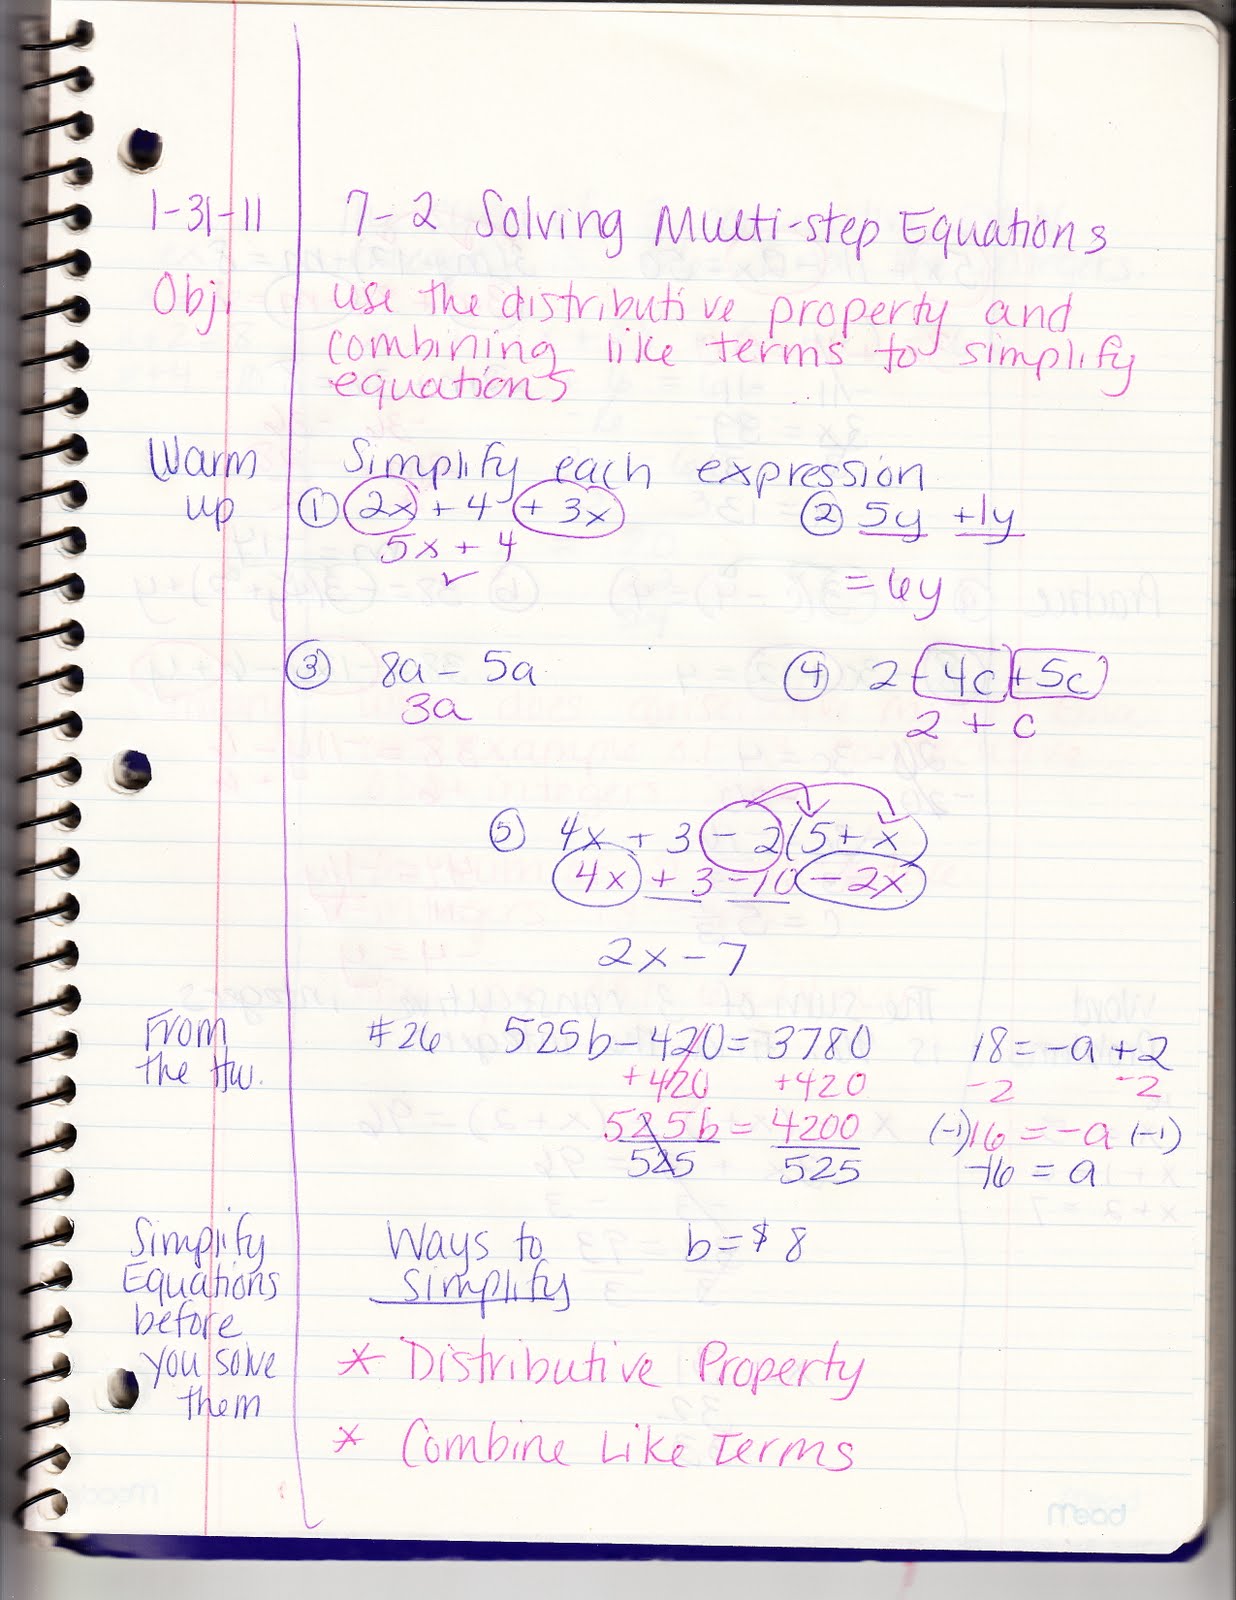 1-31-11 7-2 Solving Multi-step Equations
Obj. use the distributive property and
combining like terms to simplify
equations
Warm Simplify each expression
up ① 2x + 4 + 3x ② 5y + 1y
5x + 4
= 6y
③ 8a - 5a ④ 2 - 4c + 5c
3a 2 + c
⑤ 4x + 3 - 2(5 + x)
4x + 3 - 10 - 2x
2x - 7
From #26 525b - 420 = 3780 18 = -a + 2
the HW. +420 +420 -2 -2
525b = 4200 (-1)16 = -a (-1)
525 525 -16 = a
Simplify Ways to b = $8
Equations simplify
before
you solve * Distributive Property
them
* Combine Like Terms